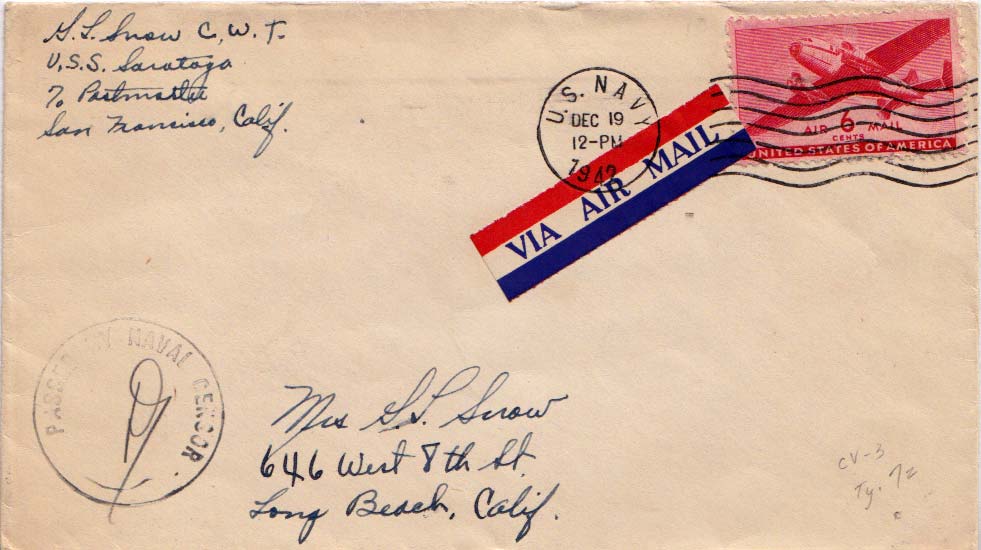 S.L. Snow C.W.T.
U.S.S. Saratoga
℅ Postmaster
San Francisco, Calif.
U.S. NAVY
DEC 19
12-PM
1942
VIA AIR MAIL
AIR 6 MAIL
CENTS
UNITED STATES OF AMERICA
PASSED BY NAVAL CENSOR
Mrs S.L. Snow
646 West 8th St.
Long Beach, Calif.
CV-3
Ty. 7z